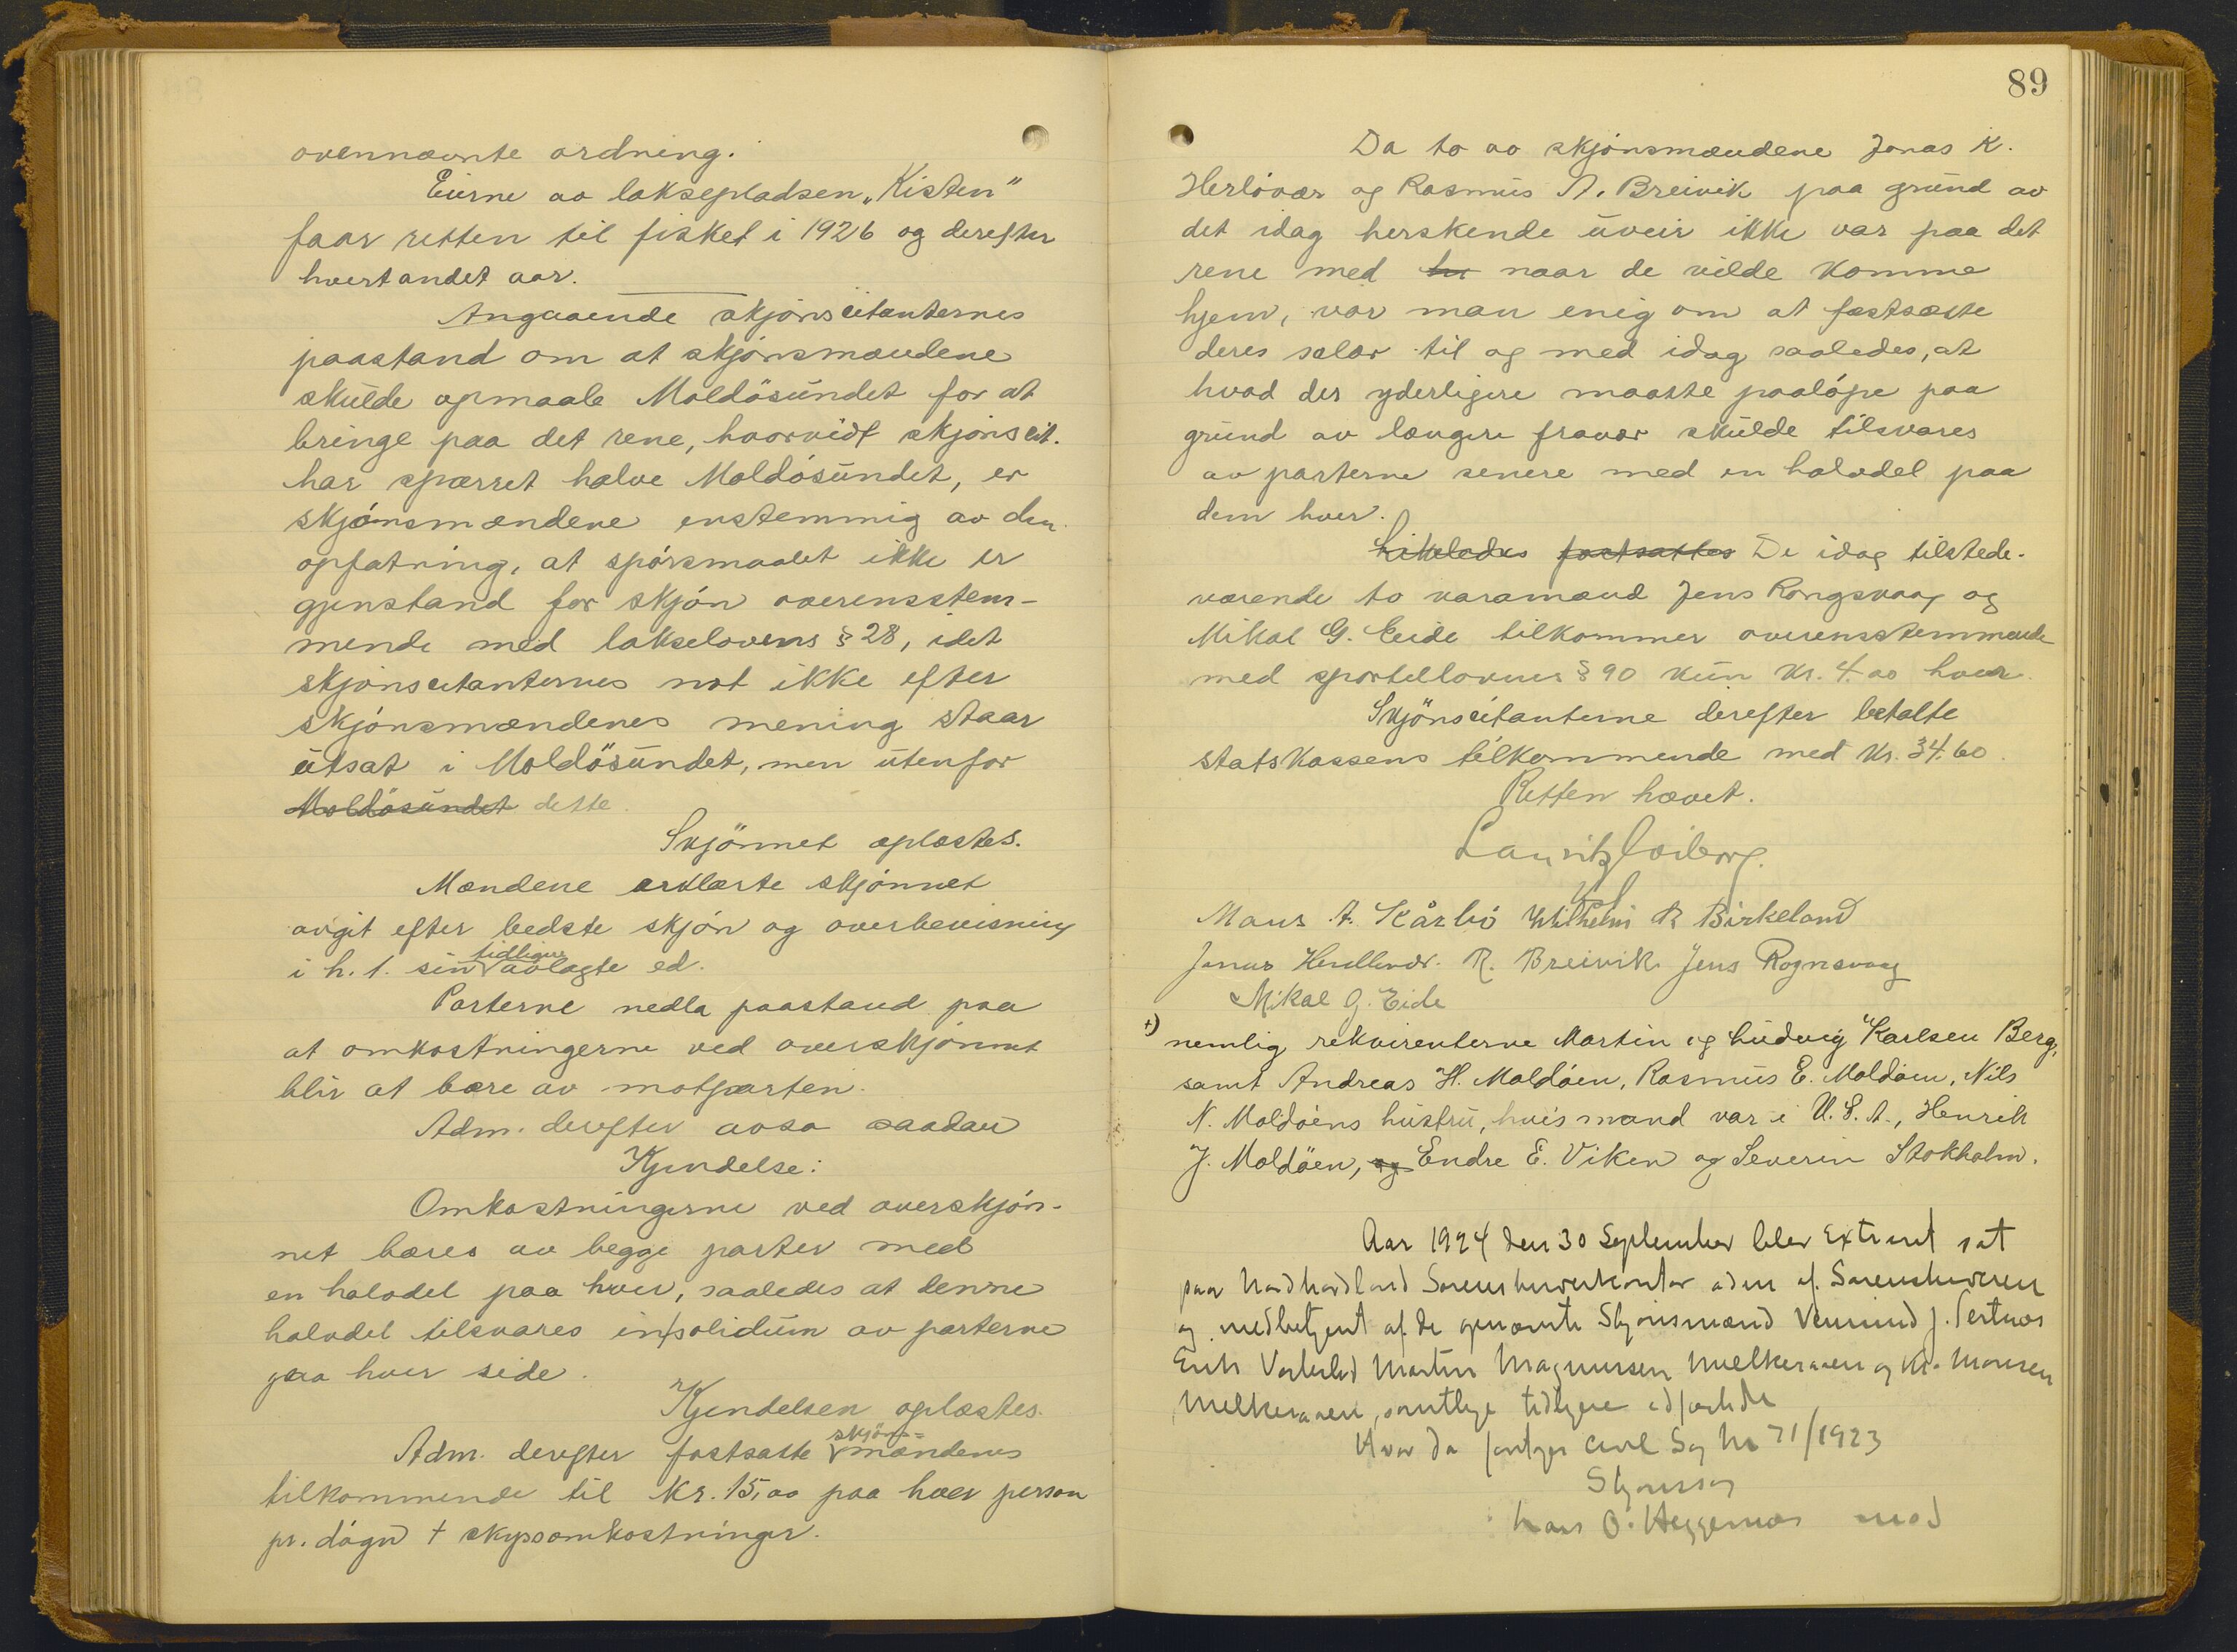 ovennævnte ordning.
Eierne av laksepladsen "Kisten"
faar retten til fisket i 1926 og derefter
hvert andet aar.
Angaaende skjønscitanternes
paastand om at skjønsmændene
skulde opmaale Moldøsundet for at
bringe paa det rene, hvorvidt skjønscit.
har spærret halve Moldøsundet, er
skjønsmændene enstemmig av den
opfatning, at spørsmaalet ikke er
gjenstand for skjøn overensstem-
mende med lakselovens § 28, idet
skjønscitanternes not ikke efter
skjønsmændenes mening staar
utsat i Moldøsundet, men utenfor
Moldøsundet dette.
Skjønnet oplæstes.
Mændene erklærte skjønnet
avgit efter bedste skjøn og overbevisning
i h. t. sin tidligere avlagte ed.
Parterne nedla paastand paa
at omkostningerne ved overskjønnet
blir at bære av motparten.
Adm. derefter avsa saadan
Kjendelse:
Omkostningerne ved overskjøn-
net bæres av begge parter med
en halvdel paa hver, saaledes at denne
halvdel tilsvares in solidum av parterne
paa hver side.
Kjendelsen oplæstes.
Adm. derefter fastsatte skjøns-
mændenes
tilkommende til kr. 15,00 paa hver person
pr. døgn + skyssomkostninger.
89
Da to av skjønsmændene Jonas K.
Herløvær og Rasmus A. Breivik paa grund av
det idag herskende uveir ikke var paa det
rene med naar de vilde komme
hjem, var man enig om at fastsætte
deres salær til og med idag saaledes, at
hvad der yderligere maatte paaløpe paa
grund av længere fravær skulde tilsvares
av parterne senere med en halvdel paa
dem hver.
Likeledes fastsattes De idag tilstede-
værende to varamænd Jens Rongsvaag og
Mikal G. Eide tilkommer overensstemmende
med sportellovens § 90 kun kr. 4.00 hver.
Skjønscitanterne derefter betalte
statskassens tilkommende med kr. 34.60.
Retten hævet.
Lauritz
Mans A. Kårbø Wilhelm R Birkeland
Jonas R. Breivik Jens Rognsvaag
Mikal G. Eide
+) nemlig rekvirenterne Martin og Ludvig Karlsen Berg,
samt Andreas H. Moldøen, Rasmus E. Moldøen, Nils
N. Moldøens hustru, hvis mand var i U.S.A., Henrik
J. Moldøen, og Endre E. Viken og Severin Stokholm.
Aar 1924 den 30 September blev Extraret sat
paa Nordhordland Sorenskriverkontor adm af Sorenskriveren
og medbetjent af de opnævnte Skjønsmænd J.
Erik Martin Magnussen og Kr. Monsen
samtlige tidligere edfæstede
Hvor da foretoges Civil Sag No 71/1923
Skjønssag
Hans O. mod